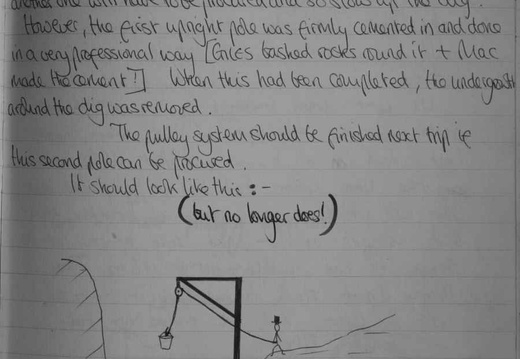 another one will have to be procured and so slows up the day.
However, the first upright pole was firmly cemented in and done
in a very professional way [Giles bashed rocks round it + Mac
made the cement!] When this had been completed, the undergrowth
around the dig was removed.
The pulley system should be finished next trip if
this second pole can be procured.
It should look like this :-
(but no longer does!)